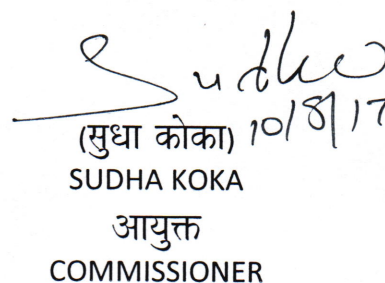 Sudha
(सुधा कोका) 10/8/17
SUDHA KOKA
आयुक्त
COMMISSIONER